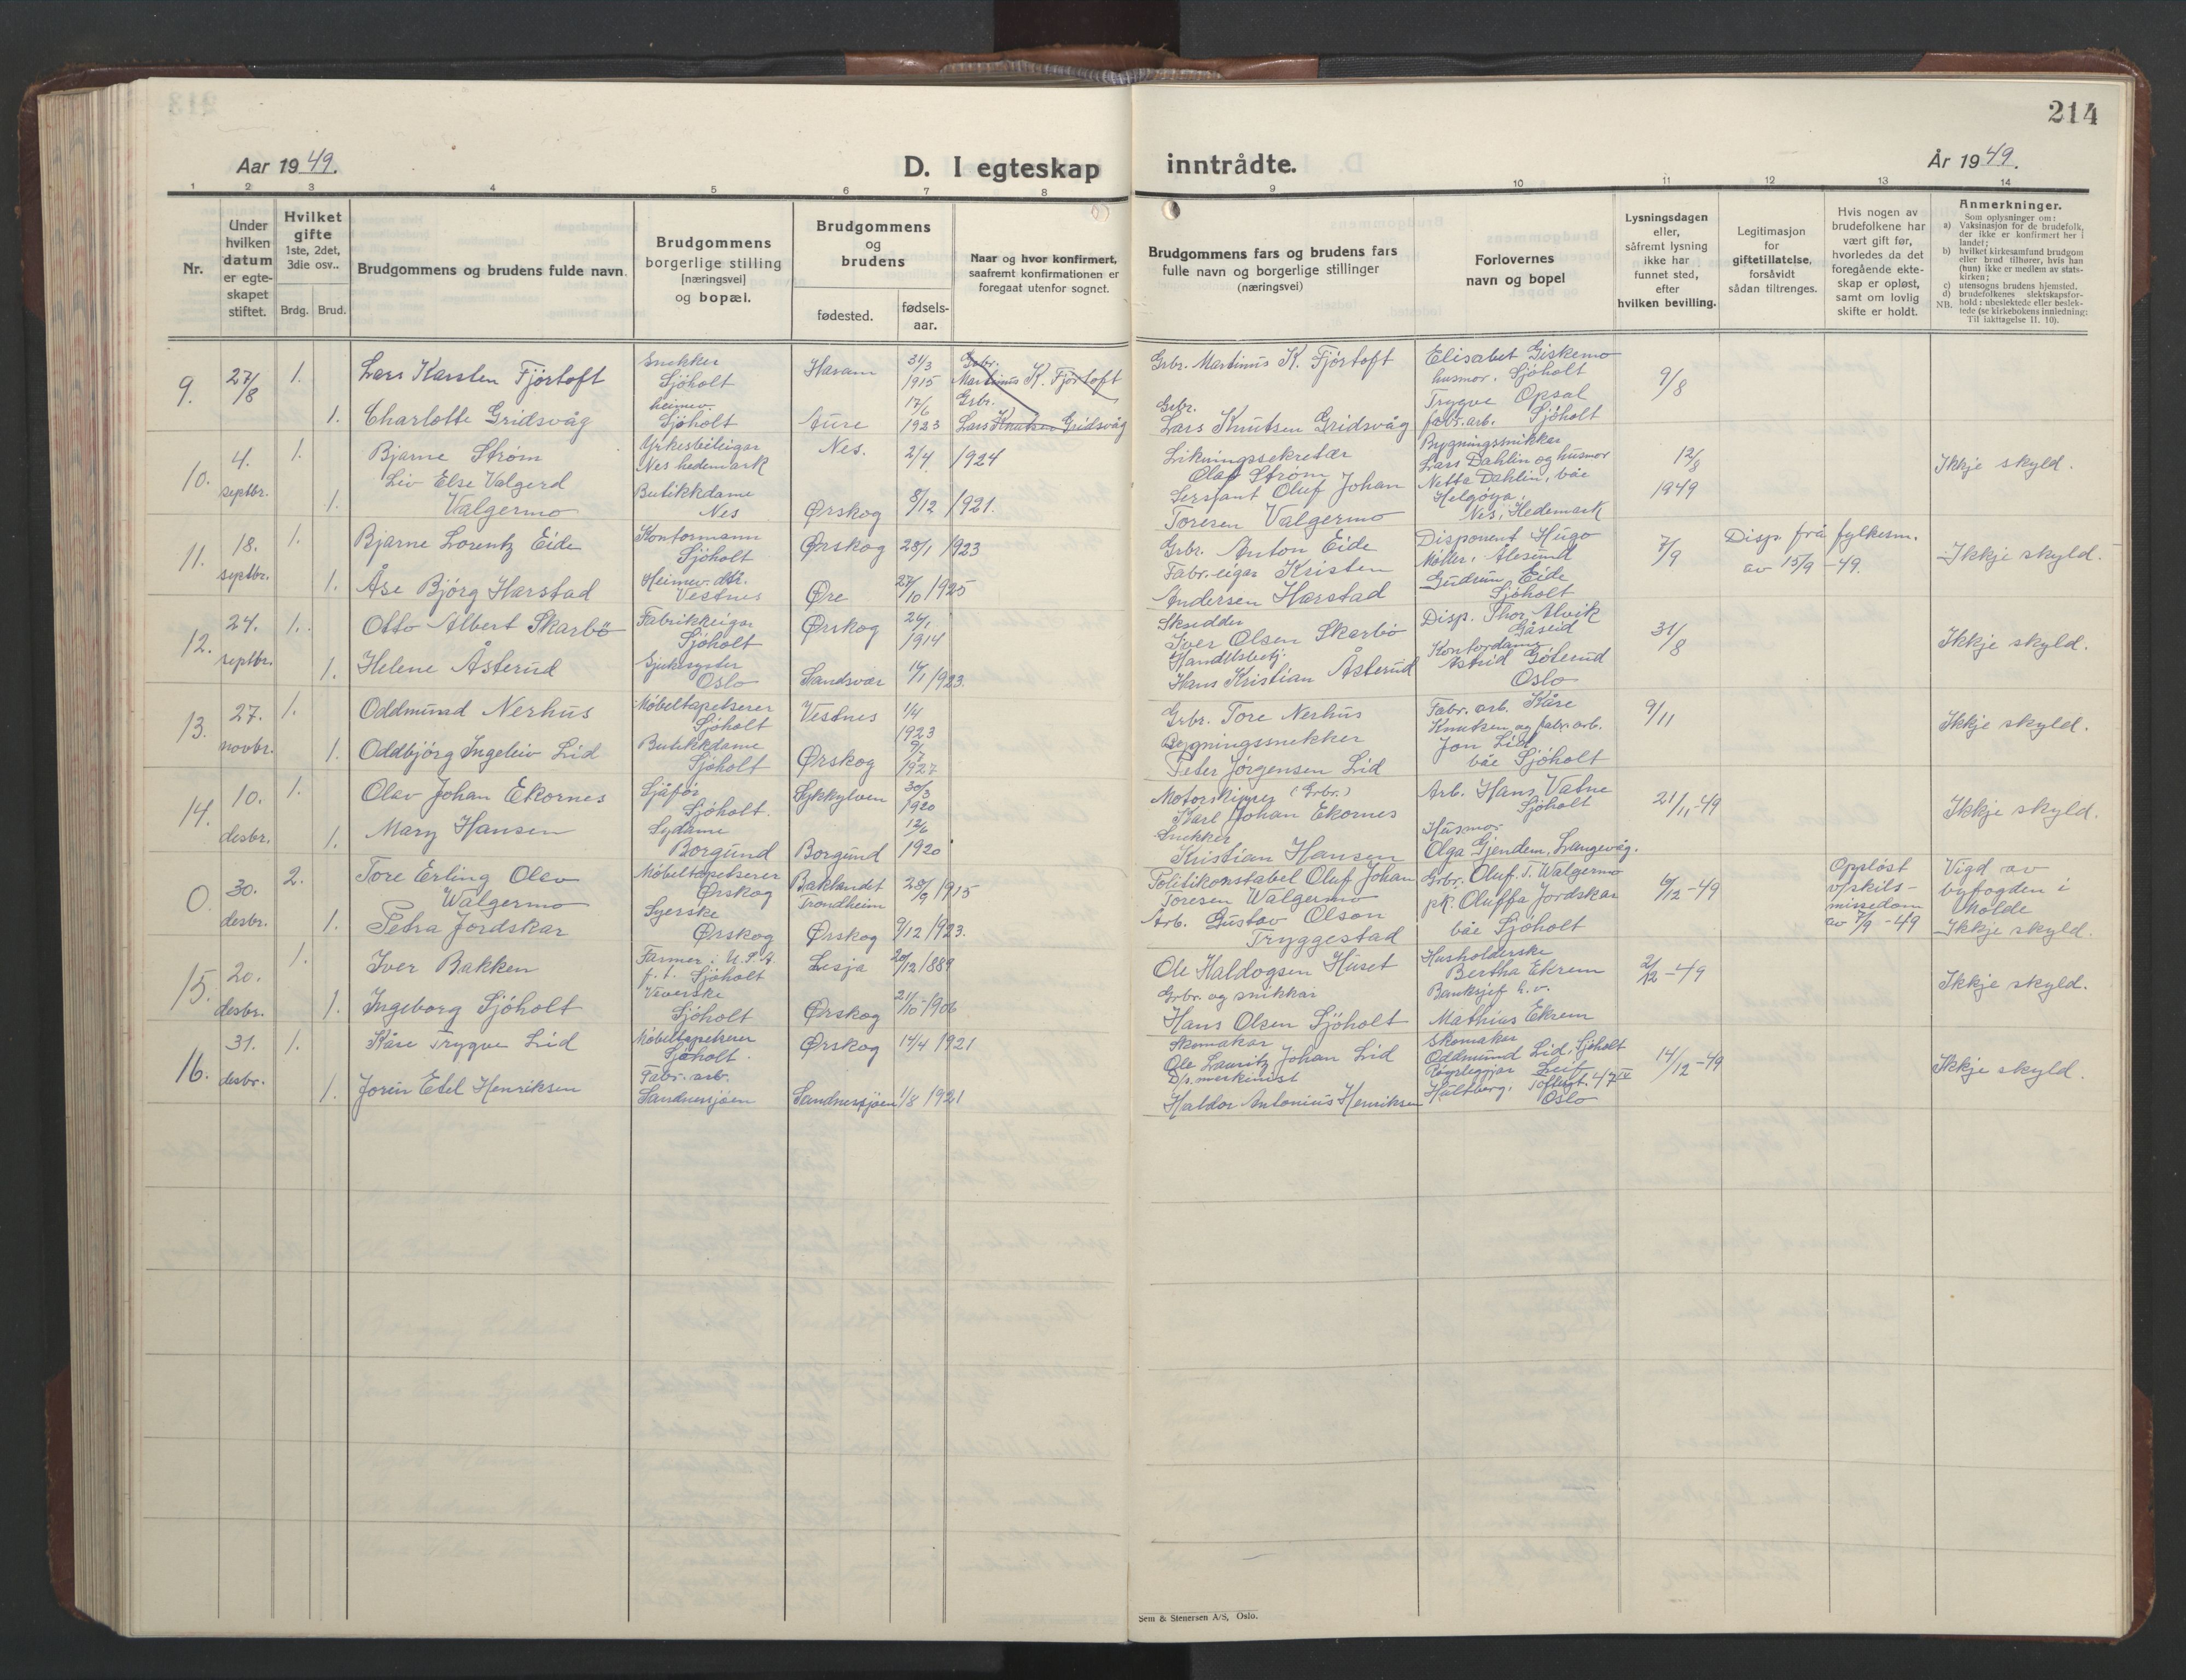 214
Aar 1949.
D. I egteskap inntrådte.
År 1949.
1 2 3 4 5 6 7 8 9 10 11 12 13 14
Nr.
Under hvilken datum er egte-skapet stiftet.
Hvilket gifte 1ste, 2det, 3die osv..
Brdg. Brud.
Brudgommens og brudens fulde navn.
Brudgommens borgerlige stilling [næringsvei] og bopæl.
Brudgommens og brudens
fødested.
fødsels-aar.
Naar og hvor konfirmert, saafremt konfirmationen er foregaat utenfor sognet.
Brudgommens fars og brudens fars fulle navn og borgerlige stillinger (næringsvei)
Forlovernes navn og bopel
Lysningsdagen eller, såfremt lysning ikke har funnet sted, efter hvilken bevilling.
Legitimasjon for giftetillatelse, forsåvidt sådan tiltrenges.
Hvis nogen av brudefolkene har vært gift før, hvorledes da det foregående ekte-skap er opløst, samt om lovlig skifte er holdt.
Anmerkninger.
Som oplysninger om:
a) Vaksinasjon for de brudefolk, der ikke er konfirmert her i landet;
b) hvilket kirkesamfund brudgom eller brud tilhører, hvis han (hun) ikke er medlem av stats-kirken;
c) utensogns brudens hjemsted.
d) brudefolkenes slektskapsfor-
NB. hold: ubeslektede eller beslek-tede (se kirkebokens innledning: Til iakttagelse II. 10).
9. 27/8 1. Lars Karsten Fjörtoft Snekker Sjöholt Haram 31/3 1915 Grbr. Martinus K. Fjörtoft Grbr. Martinus K. Fjörtoft Elisabet Giskemo husmor. Sjöholt 9/8
1. Charlotte Gridsvåg heimev. Sjöholt Aure 17/6 1923 Grbr. Lars Knutsen Gridsvåg Grbr. Lars Knutsen Gridsvåg Trygve Opsal fabr. arb. Sjöholt
10. 4. septbr. 1. Bjarne Strøm Yrkesrettleigar Nes hedemark Nes. 2/4 1924 Likningssekretær Olaf Strøm Bygningssnikkar Lars Dahlin og husmor 12/8 1949 Ikkje skyld.
1. Liv Else Valgerd Valgermo Butikkdame Nes Ørskog 8/12 1921. Sersjant Oluf Johan Toresen Valgermo Netta Dahlin, båe Helgøya, Nes, Hedemark
11. 18. septbr. 1. Bjarne Lorentz Eide Kontormann Sjöholt Ørskog 28/1 1923 Grbr. Anton Eide Disponent Hugo Møller, Ålesund 7/9 Disp. frå fylkesm. av 15/9 -49. Ikkje skyld.
1. Åse Bjørg Harstad Heimev. dtr. Vestnes Øre 27/10 1925 Fabr. eigar Kristen Andersen Harstad Gudrun Eide Sjöholt
12. 24. septbr. 1. Otto Albert Skarbö Fabrikkeigar Sjöholt Ørskog 26/1 1914 Skredder Iver Olsen Skarbö Disp. Thor Alvik Gåseid 31/8 Ikkje skyld.
1. Helene Åsterud Sjukesyster Oslo Sandsvær 14/1 1923. Handelsbetj. Hans Kristian Åsterud Kontordame Astrid Göterud Oslo
13. 27. novbr. 1. Oddmund Nerhus Møbeltapetserer Sjöholt Vestnes 1/4 1923 Grbr. Tore Nerhus Fabr. arb. Kåre Knutsen og fabr. arb. 9/11 Ikkje skyld.
1. Oddbjörg Ingeleiv Lid Butikkdame Sjöholt Ørskog 9/7 1927 Bygningssnekker Peter Jørgensen Lid Jon Lid båe Sjöholt
14. 10. desbr. 1. Olav Johan Ekornes Sjåfør Sjöholt. Sykkylven 30/3 1920 Motorskipper (Grbr.) Karl Johan Ekornes Arb. Hans Vatne Sjöholt 21/11 -49 Ikkje skyld.
1. Mary Hansen Sydame Borgund Borgund 12/6 1920 Snekker Kristian Hansen Husmor Olga Gjendem, Langevåg.
0. 30. desbr. 2. Tore Erling Olav Walgermo Møbeltapetserer Ørskog Baklandet Trondheim 28/9 1915 Politikonstabel Oluf Johan Toresen Walgermo Grbr. Oluf T. Walgermo 6/12 -49 Oppløst v/skils-missedom av 7/9 -49 Vigd av byfogden i Molde Ikkje skyld.
1. Petra Jordskar Syerske Ørskog Ørskog 9/12 1923. Arb. Gustav Olson Tryggestad pk. Oluffa Jordskar båe Sjöholt
15. 20. desbr. 1. Iver Bakken Farmer i U.S.A. p.t. Sjöholt Lesja 20/12 1889 Ole Haldogsen Huset Husholderske Bertha Ekrem 2/12 -49 Ikkje skyld.
1. Ingeborg Sjöholt Veverske Sjöholt Ørskog 21/10 -1906 Grbr. og snikkar Hans Olsen Sjöholt Banksjef h.v. Mathias Ekrem
16. 31. desbr. 1. Kåre Trygve Lid Møbeltapetserer Sjöholt. Ørskog 14/4 1921 Skomakar Ole Lauritz Johan Lid Skomakar Oddmund Lid, Sjöholt 14/12 -49 Ikkje skyld.
1. Jorun Etel Henriksen Fabr. arb. Sandnessjøen Sandnessjøen 1/8 1921 D/s. maskinist Haldor Antonius Henriksen Røyrleggjar Leif Hultberg, Toftesgt. 47 IV Oslo
Sem & Stenersen A/S, Oslo.